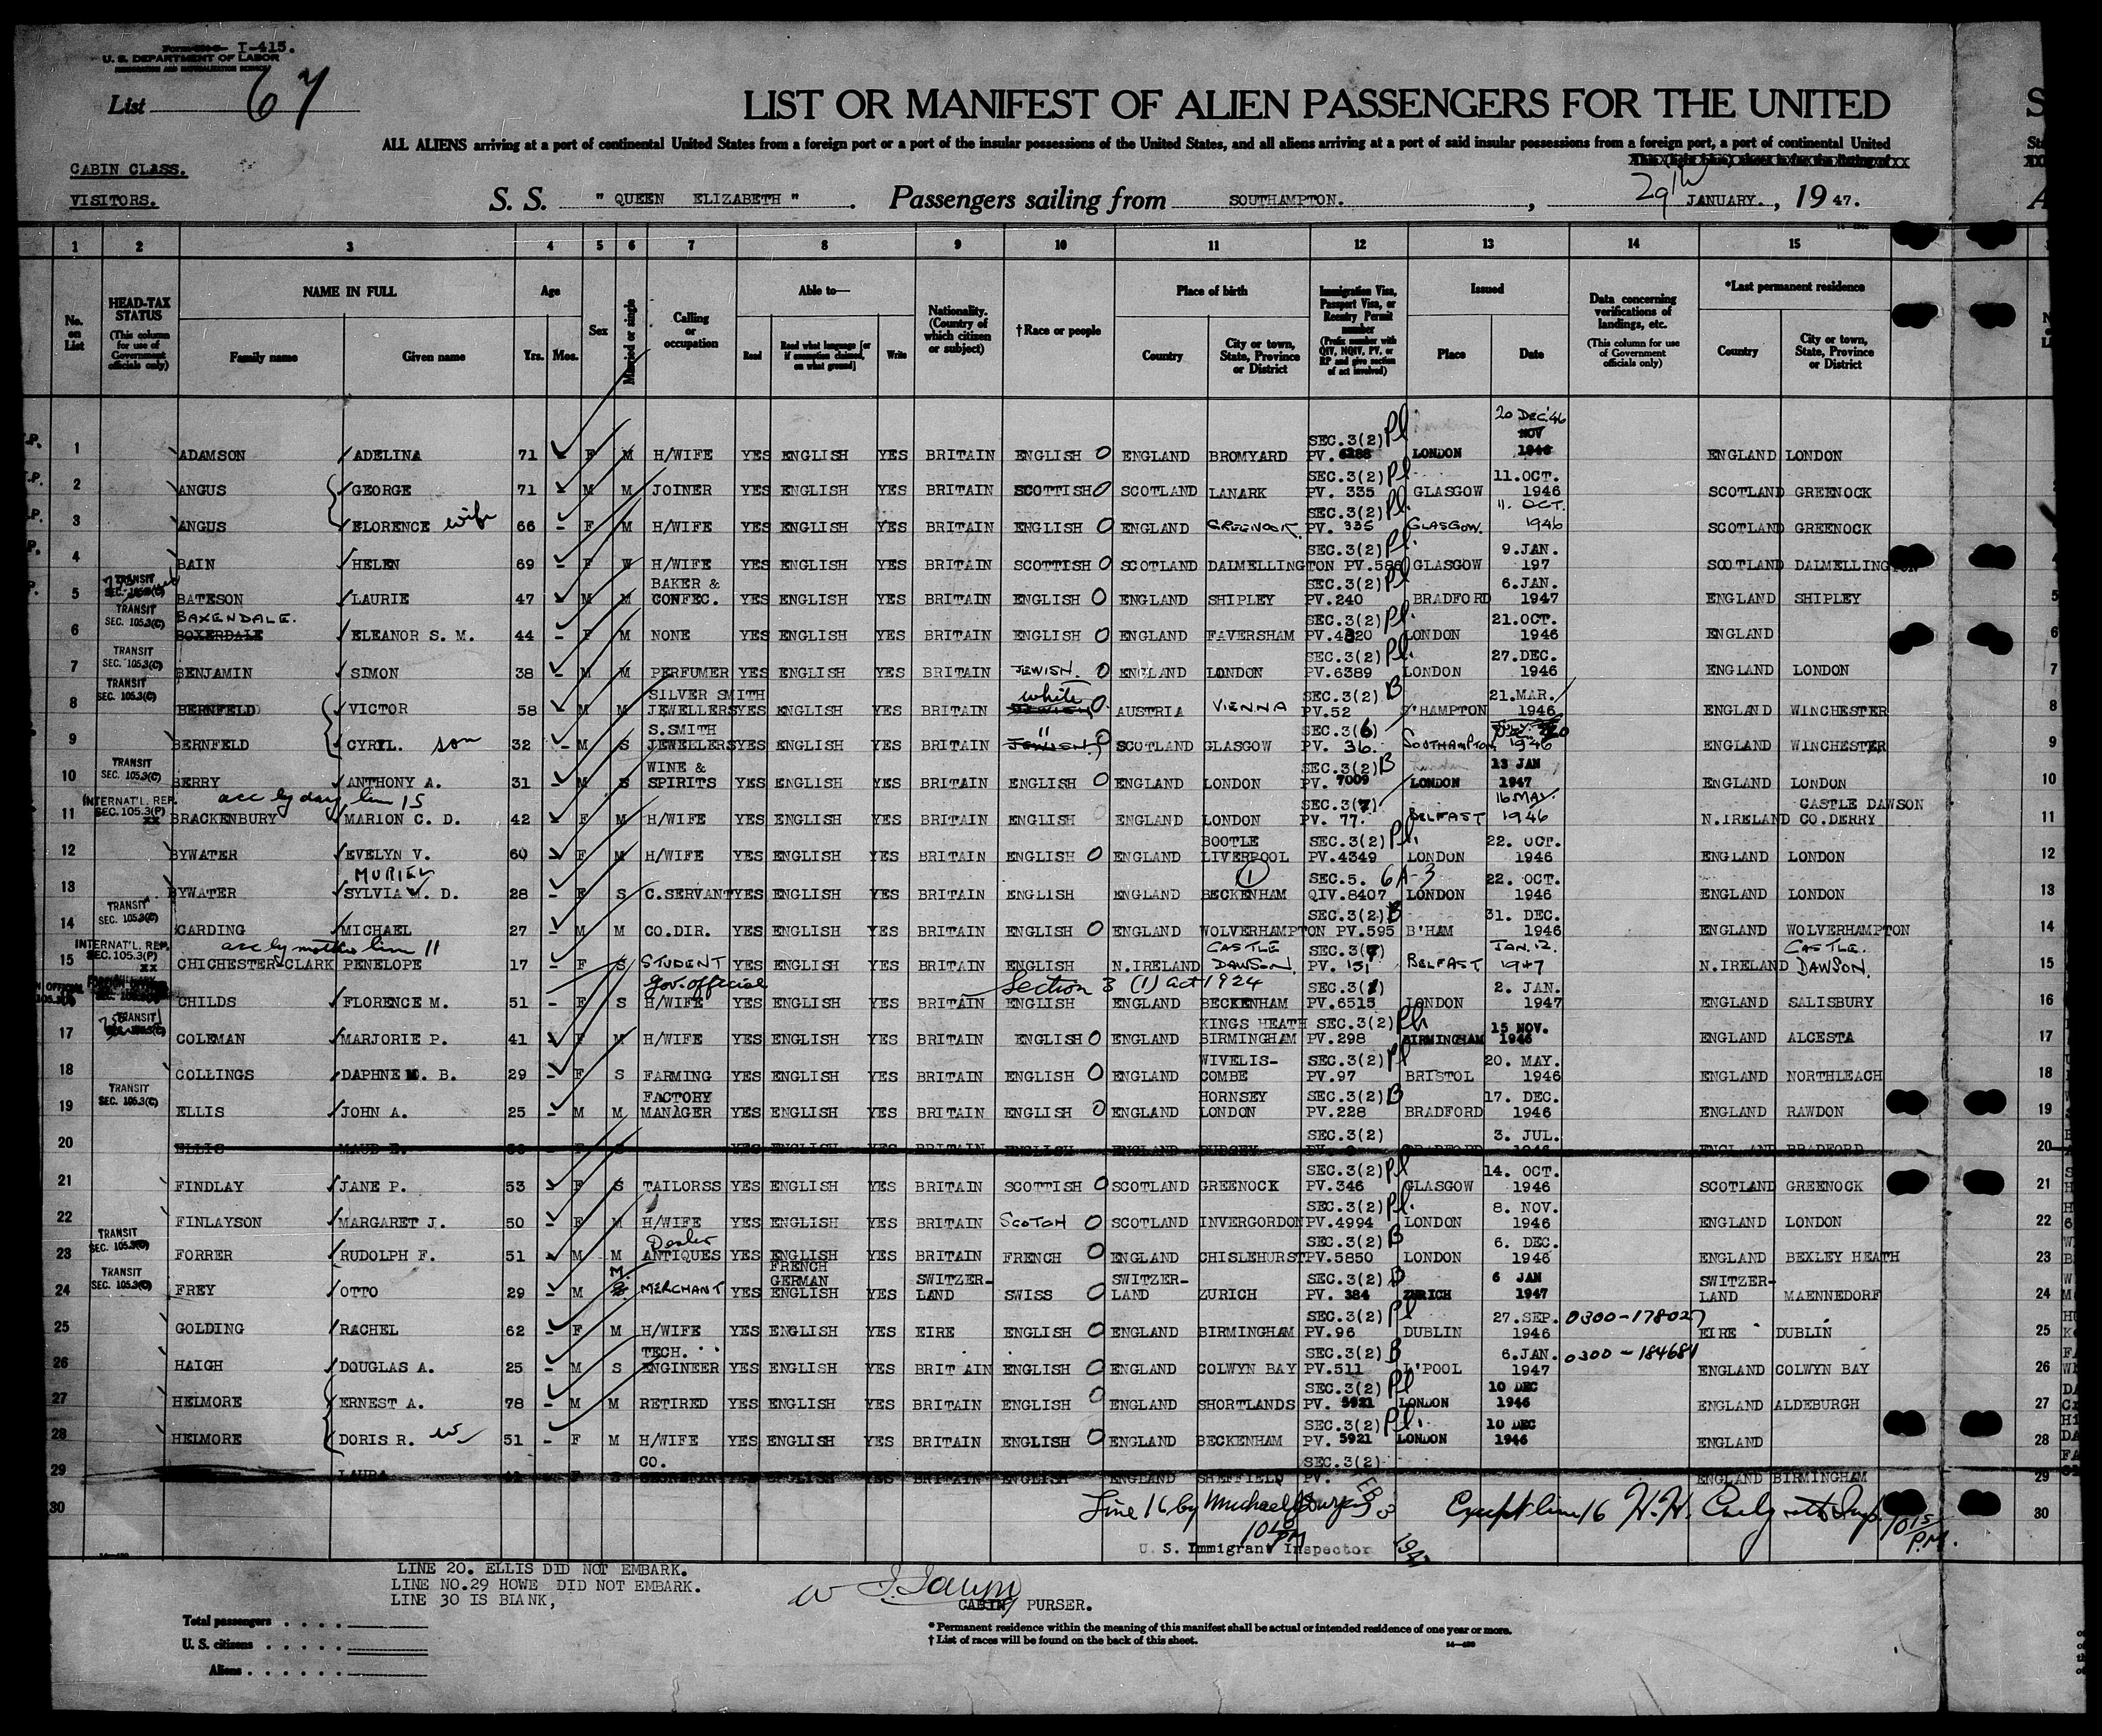 Form I-415.
U. S. DEPARTMENT OF LABOR
IMMIGRATION AND NATURALIZATION SERVICE
List 67
LIST OR MANIFEST OF ALIEN PASSENGERS FOR THE UNITED S
ALL ALIENS arriving at a port of continental United States from a foreign port or a port of the insular possessions of the United States, and all aliens arriving at a port of said insular possessions from a foreign port, a port of continental United Sta
CABIN CLASS.
VISITORS.
S. S. " QUEEN ELIZABETH ". Passengers sailing from SOUTHAMPTON. , 29th JANUARY. , 19 47.
1 2 3 4 5 6 7 8 9 10 11 12 13 14 15
No. on List
HEAD-TAX STATUS (This column for use of Government officials only)
NAME IN FULL Family name Given name
Age Yrs. Mos.
Sex
Married or single
Calling or occupation
Able to— Read Read what language [or if exemption claimed, on what ground] Write
Nationality. (Country of which citizen or subject)
†Race or people
Place of birth Country City or town, State, Province or District
Immigration Visa, Passport Visa, or Reentry Permit number (Prefix number with QIV, NQIV, PV, or RP and give section of act involved)
Issued Place Date
Data concerning verifications of landings, etc. (This column for use of Government officials only)
*Last permanent residence Country City or town, State, Province or District
1 ADAMSON ADELINA 71 F M H/WIFE YES ENGLISH YES BRITAIN ENGLISH O ENGLAND BROMYARD SEC.3(2) Pl PV. 6288 LONDON 20 DEC '46 NOV 1946 ENGLAND LONDON
2 ANGUS GEORGE 71 M M JOINER YES ENGLISH YES BRITAIN SCOTTISH O SCOTLAND LANARK SEC.3(2) Pl PV. 335 GLASGOW 11.OCT. 1946 SCOTLAND GREENOCK
3 ANGUS FLORENCE wife 66 – F M H/WIFE YES ENGLISH YES BRITAIN ENGLISH O ENGLAND GREENOCK. SEC.3(2) Pl. PV. 335 GLASGOW. 11. OCT. 1946 SCOTLAND GREENOCK
4 BAIN HELEN 69 – F W H/WIFE YES ENGLISH YES BRITAIN SCOTTISH O SCOTLAND DALMELLINGTON SEC.3(2) Pl. PV.586 GLASGOW 9.JAN. 197 SCOTLAND DALMELLINGTON
5 TRANSIT BATESON LAURIE 47 M M BAKER & CONFEC. YES ENGLISH YES BRITAIN ENGLISH O ENGLAND SHIPLEY SEC.3(2) Pl PV.240 BRADFORD 6.JAN. 1947 ENGLAND SHIPLEY 5
6 TRANSIT SEC. 105.3(C) BAXENDALE. BOXERDALE ELEANOR S. M. 44 – F M NONE YES ENGLISH YES BRITAIN ENGLISH O ENGLAND FAVERSHAM SEC.3(2) Pl. PV.4320 LONDON 21.OCT. 1946 ENGLAND 6
7 TRANSIT SEC. 105.3(C) BENJAMIN SIMON 38 – M M PERFUMER YES ENGLISH YES BRITAIN JEWISH. O ENGLAND LONDON SEC.3(2) Pl. PV.6389 LONDON 27.DEC. 1946 ENGLAND LONDON 7
8 TRANSIT SEC. 105.3(C) BERNFELD VICTOR 58 M M SILVER SMITH JEWELLERS YES ENGLISH YES BRITAIN white JEWISH O AUSTRIA VIENNA SEC.3(2) B PV.52 S'HAMPTON 21.MAR. 1946 ENGLAND WINCHESTER 8
9 BERNFELD CYRIL. son 32 – M S S.SMITH JEWELLERS YES ENGLISH YES BRITAIN " JEWISH. O SCOTLAND GLASGOW SEC.3(6) PV. 36. SOUTHAMPTON 1946 ENGLAND WINCHESTER 9
10 TRANSIT SEC. 105.3(C) BERRY ANTHONY A. 31 M S WINE & SPIRITS YES ENGLISH YES BRITAIN ENGLISH O ENGLAND LONDON SEC.3(2) B PV. 7009 LONDON 13 JAN 1947 ENGLAND LONDON 10
acc by dau, line 15
11 INTERNAT'L. REP. SEC. 105.3(P) XX BRACKENBURY MARION C. D. 42 F M H/WIFE YES ENGLISH YES BRITAIN ENGLISH ENGLAND LONDON SEC.3(7) PV. 77. BELFAST 16 MAY. 1946 N.IRELAND CASTLE DAWSON CO.DERRY 11
12 BYWATER EVELYN V. 60 F M H/WIFE YES ENGLISH YES BRITAIN ENGLISH O ENGLAND BOOTLE LIVERPOOL SEC.3(2) Pl. PV.4349 LONDON 22. OCT. 1946 ENGLAND LONDON 12
13 BYWATER MURIEL SYLVIA M. D. 28 – F S C.SERVANT YES ENGLISH YES BRITAIN ENGLISH ENGLAND (1) BECKENHAM SEC.5. 6A-3 QIV.8407 LONDON 22. OCT. 1946 ENGLAND LONDON 13
14 TRANSIT SEC. 105.3(C) CARDING MICHAEL 27 M M CO.DIR. YES ENGLISH YES BRITAIN ENGLISH O ENGLAND WOLVERHAMPTON SEC.3(2) B PV.595 B'HAM 31. DEC. 1946 ENGLAND WOLVERHAMPTON 14
acc by mother line 11
15 INTERNAT'L. REP. SEC. 105.3(P) XX CHICHESTER-CLARK PENELOPE 17 – F S STUDENT YES ENGLISH YES BRITAIN ENGLISH N.IRELAND CASTLE DAWSON. SEC.3(7) PV. 151 BELFAST JAN. 12. 1947 N.IRELAND CASTLE. DAWSON. 15
16 CHILDS FLORENCE M. 51 – F S Gov. official H/WIFE YES ENGLISH YES BRITAIN Section 3 (1) act 1924 ENGLISH ENGLAND BECKENHAM SEC.3(1) PV.6515 LONDON 2. JAN. 1947 ENGLAND SALISBURY 16
17 TRANSIT COLEMAN MARJORIE P. 41 F M H/WIFE YES ENGLISH YES BRITAIN ENGLISH O ENGLAND KINGS HEATH BIRMINGHAM SEC.3(2) Pl. PV.298 BIRMINGHAM 15 NOV. 1946 ENGLAND ALCESTA 17
18 COLLINGS DAPHNE M. B. 29 – F S FARMING YES ENGLISH YES BRITAIN ENGLISH O ENGLAND WIVELIS- COMBE SEC.3(2) Pl PV.97 BRISTOL 20. MAY. 1946 ENGLAND NORTHLEACH 18
19 TRANSIT SEC. 105.3(C) ELLIS JOHN A. 25 – M M FACTORY MANAGER YES ENGLISH YES BRITAIN ENGLISH O ENGLAND HORNSEY LONDON SEC.3(2) B PV.228 BRADFORD 17. DEC. 1946 ENGLAND RAWDON 19
20 ELLIS MAUD E. F S YES ENGLISH YES BRITAIN ENGLISH ENGLAND PUDSEY SEC.3(2) BRADFORD 3. JUL. 1946 ENGLAND BRADFORD 20
21 FINDLAY JANE P. 53 F S TAILORSS YES ENGLISH YES BRITAIN SCOTTISH O SCOTLAND GREENOCK SEC.3(2) Pl PV.346 GLASGOW 14. OCT. 1946 SCOTLAND GREENOCK 21
22 FINLAYSON MARGARET J. 50 – F M H/WIFE YES ENGLISH YES BRITAIN SCOTCH O SCOTLAND INVERGORDON SEC.3(2) Pl. PV.4994 LONDON 8. NOV. 1946 ENGLAND LONDON 22
23 TRANSIT SEC. 105.3(C) FORRER RUDOLPH F. 51 M M Dealer ANTIQUES YES ENGLISH YES BRITAIN FRENCH O ENGLAND CHISLEHURST SEC.3(2) B PV.5850 LONDON 6. DEC. 1946 ENGLAND BEXLEY HEATH 23
24 TRANSIT SEC. 105.3(C) FREY OTTO 29 M M. S MERCHANT YES FRENCH GERMAN ENGLISH YES SWITZER- LAND SWISS O SWITZER- LAND ZURICH SEC.3(2) B PV. 384 ZURICH 6 JAN 1947 SWITZER- LAND MAENNEDORF 24
25 GOLDING RACHEL 62 – F M H/WIFE YES ENGLISH YES EIRE ENGLISH O ENGLAND BIRMINGHAM SEC.3(2) Pl PV.96 DUBLIN 27. SEP. 1946 0300-178027 EIRE DUBLIN 25
26 HAIGH DOUGLAS A. 25 – M S TECH. ENGINEER YES ENGLISH YES BRITAIN ENGLISH O ENGLAND COLWYN BAY SEC.3(2) B PV.511 L'POOL 6.JAN. 1947 0300-184681 ENGLAND COLWYN BAY 26
27 HELMORE ERNEST A. 78 – M M RETIRED YES ENGLISH YES BRITAIN ENGLISH O ENGLAND SHORTLANDS SEC.3(2) Pl PV. 5921 LONDON 10 DEC 1946 ENGLAND ALDEBURGH 27
28 HELMORE DORIS R. w 51 – F M H/WIFE YES ENGLISH YES BRITAIN ENGLISH O ENGLAND BECKENHAM SEC.3(2) Pl. PV. 5921 LONDON 10 DEC 1946 ENGLAND 28
29 LAURA 41 F S CO. SECRETARY YES ENGLISH YES BRITAIN ENGLISH ENGLAND SHEFFIELD SEC.3(2) PV. ENGLAND BIRMINGHAM 29
30 Line 16 by Michael FEB 3 1947 Except line 16 H.H. 10 15 P.M. 30
10 15 PM
U. S. Immigrant Inspector
LINE 20. ELLIS DID NOT EMBARK.
LINE NO.29 HOWE DID NOT EMBARK.
LINE 30 IS BLANK,
CABIN PURSER.
Total passengers
U. S. citizens
Aliens
* Permanent residence within the meaning of this manifest shall be actual or intended residence of one year or more.
† List of races will be found on the back of this sheet.